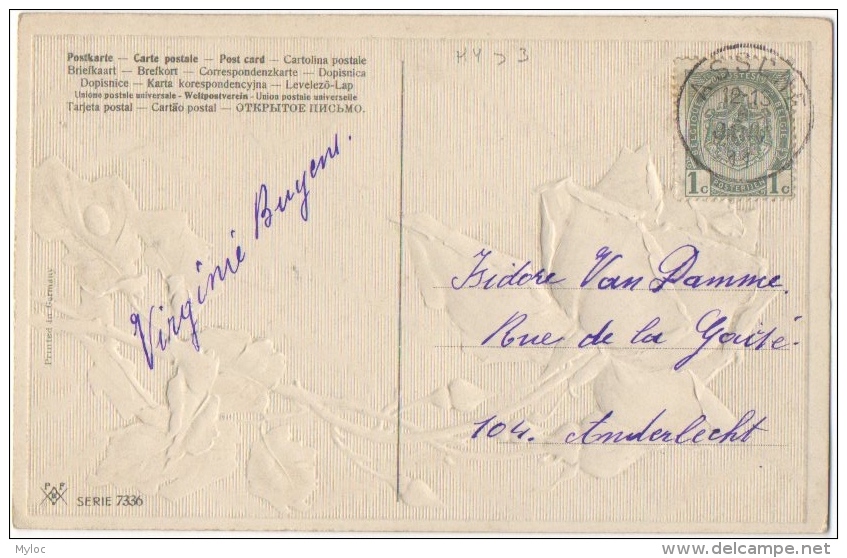 Postkarte — Carte postale — Post card — Cartolina postale
Briefkaart — Brefkort — Correspondenzkarte — Dopisnica
Dopisnice — Karta korespondencyjna — Levelező-Lap
Unione postale universale - Weltpostverein - Union postale universelle
Tarjeta postal — Cartão postal — ОТКРЫТОЕ ПИСЬМО.
Virginie Buyens.
Printed in Germany
P F B
SERIE 7336
ASSCHE
12-13
11
BELGIQUE
BELGIË
1c POSTERIJEN 1c
Isidore Van Damme.
Rue de la Gaité.
104. Anderlecht
Myloc
delcampe.net